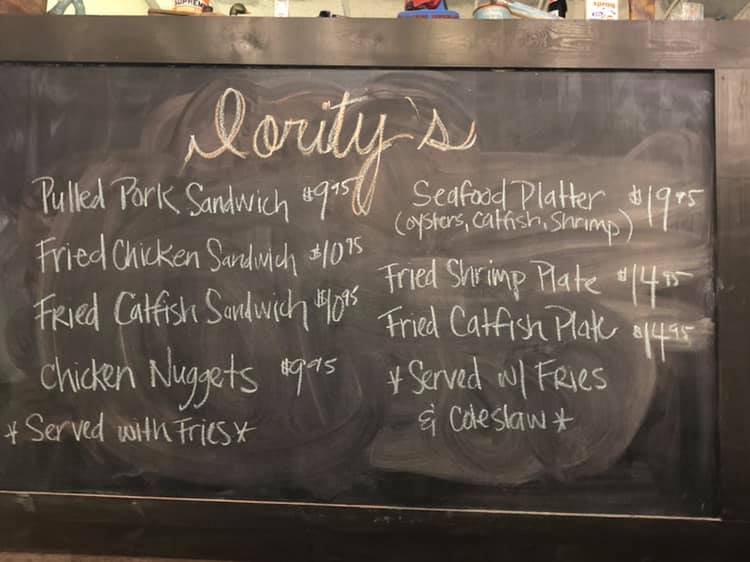 Iority's
Pulled Pork Sandwich $9.95
Fried Chicken Sandwich $10.95
Fried Catfish Sandwich $10.95
Chicken Nuggets $9.95
* Served with Fries *
Seafood Platter $19.95
(oysters, catfish, shrimp)
Fried Shrimp Plate $14.95
Fried Catfish Plate $14.95
* Served w/ Fries
& Coleslaw *